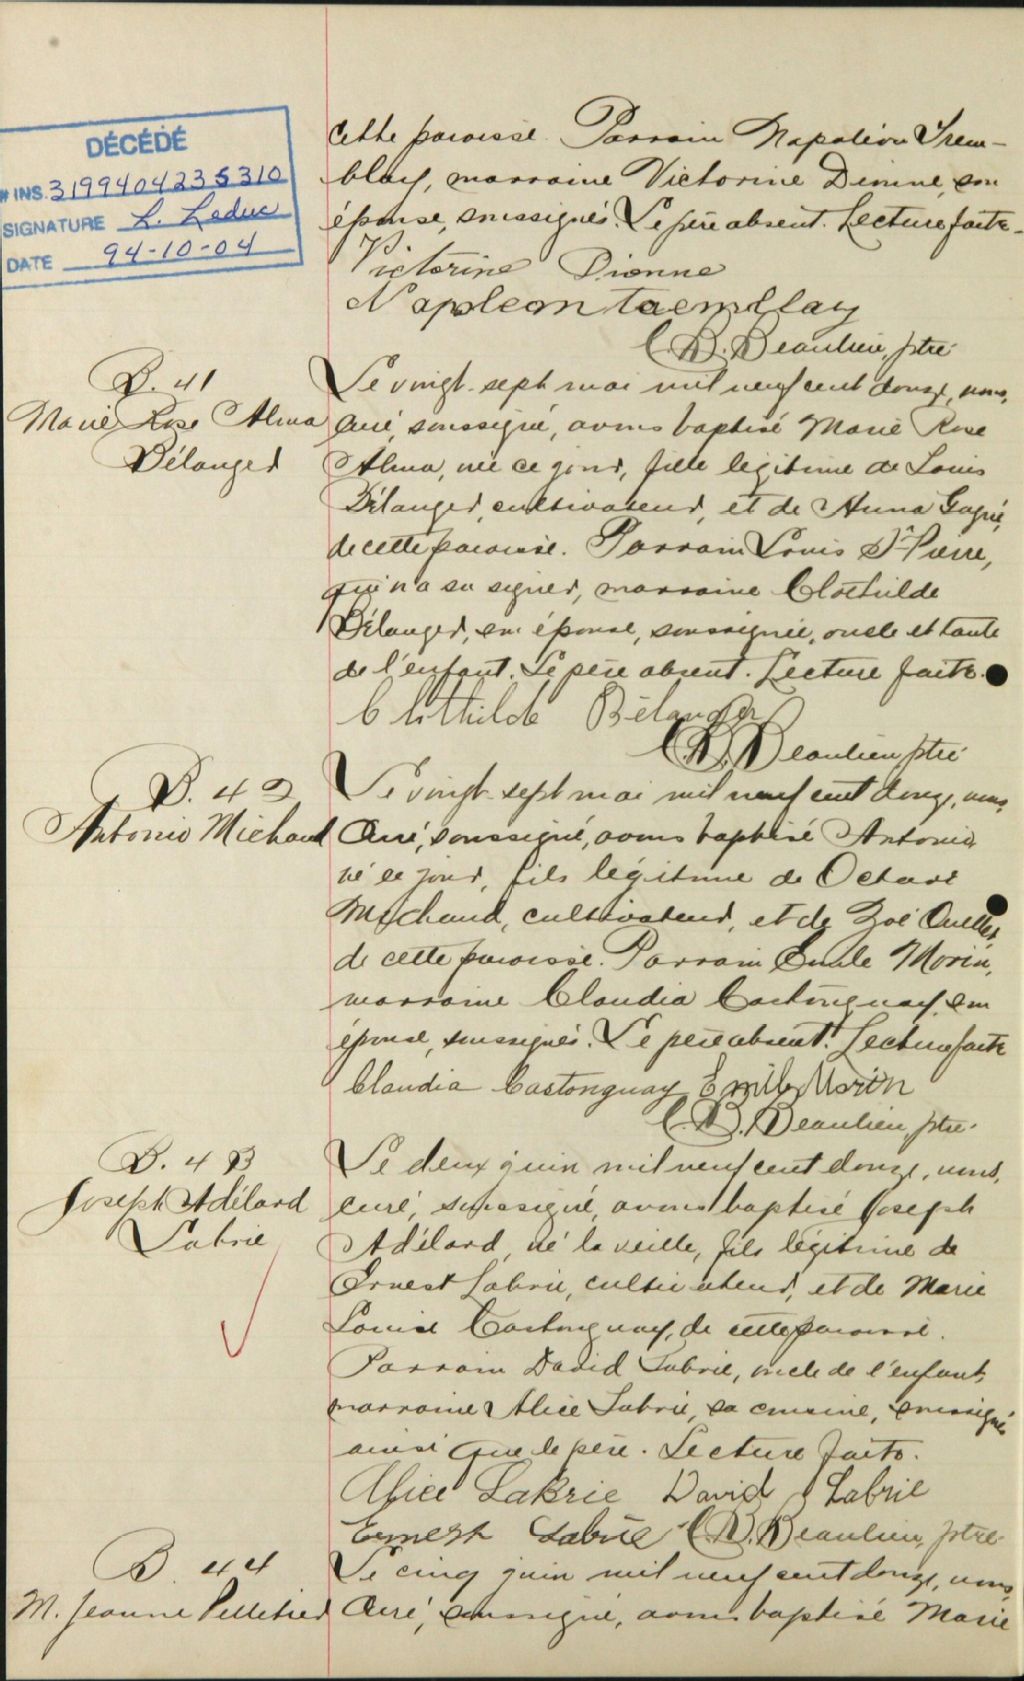 DÉCÉDÉ
# INS. 3199404235310
SIGNATURE L. Leduc
DATE 94-10-04
cette paroisse. Parrain Napoléon Trem-
blay, marraine Victorine Dionne, son
épouse, soussignés. Le père absent. Lecture faite.
Victorine Dionne
Napoleon
Beaulieu, ptre
B. 41
Marie Rose Alma
Bélanger
Le vingt-sept mai mil neuf cent douze, nous,
curé, soussigné, avons baptisé Marie Rose
Alma, née ce jour, fille légitime de Louis
Bélanger, cultivateur, et de Anna Gagné,
de cette paroisse. Parrain Louis St-Pierre,
qui n'a su signer, marraine Clothilde
Bélanger, son épouse, soussignée, oncle et tante
de l'enfant. Le père absent. Lecture faite.
Clothilde Bélanger
Beaulieu, ptre
B. 42
Antonio Michaud
Le vingt-sept mai mil neuf cent douze, nous,
curé, soussigné, avons baptisé Antonio,
né ce jour, fils légitime de Octave
Michaud, cultivateur, et de Zoé Ouellet,
de cette paroisse. Parrain Emile Morin,
marraine Claudia Castonguay, son
épouse, soussignés. Le père absent. Lecture faite
Claudia Castonguay Emile Morin
Beaulieu, ptre.
B. 43
Joseph Adélard
Labrie
Le deux juin mil neuf cent douze, nous,
curé, soussigné, avons baptisé Joseph
Adélard, né la veille, fils légitime de
Ernest Labrie, cultivateur, et de Marie
Louise Castonguay, de cette paroisse.
Parrain David Labrie, oncle de l'enfant,
marraine Alice Labrie, sa cousine, soussignés
ainsi que le père. Lecture faite.
Alice LaBrie David Labrie
Ernest Labrie Beaulieu, ptre
B. 44
M. Jeanne Pelletier
Le cinq juin mil neuf cent douze, nous,
curé, soussigné, avons baptisé Marie